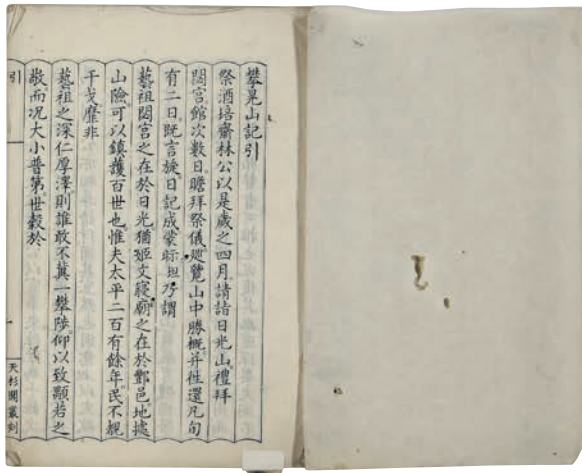 攀晃山記引
祭酒培齋林公以是歲之四月請詣日光山禮拜
閟宮館次數日瞻拜祭儀廵覽山中勝概并往還凡旬
有二日既言旋日記成蒙眎坦乃謂
藝祖閟宮之在於日光猶姬文寢廟之在於酆邑地據
山險可以鎮護百世也惟夫太平二百有餘年民不覩
干戈靡非
藝祖之深仁厚澤則誰敢不冀一攀陟仰以致顒若之
敬而况大小普第世穀於
引
天杉閣叢刻